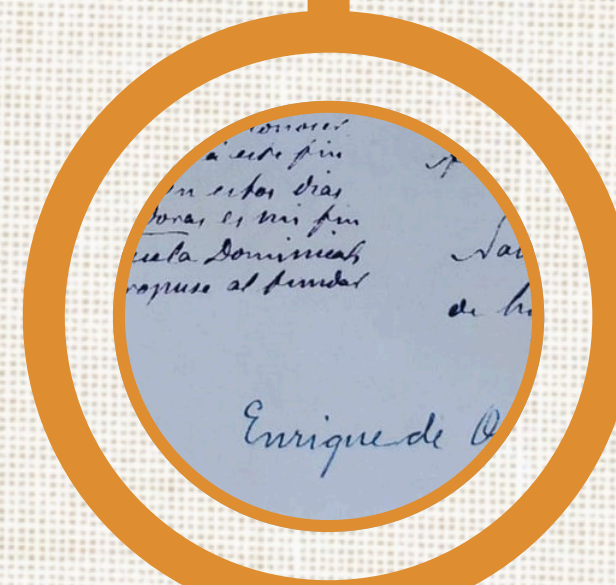 conocer
á este fin
en estos dias
doras es mi fin
uela Dominical,
ropuse al fundar
de
Enrique de O